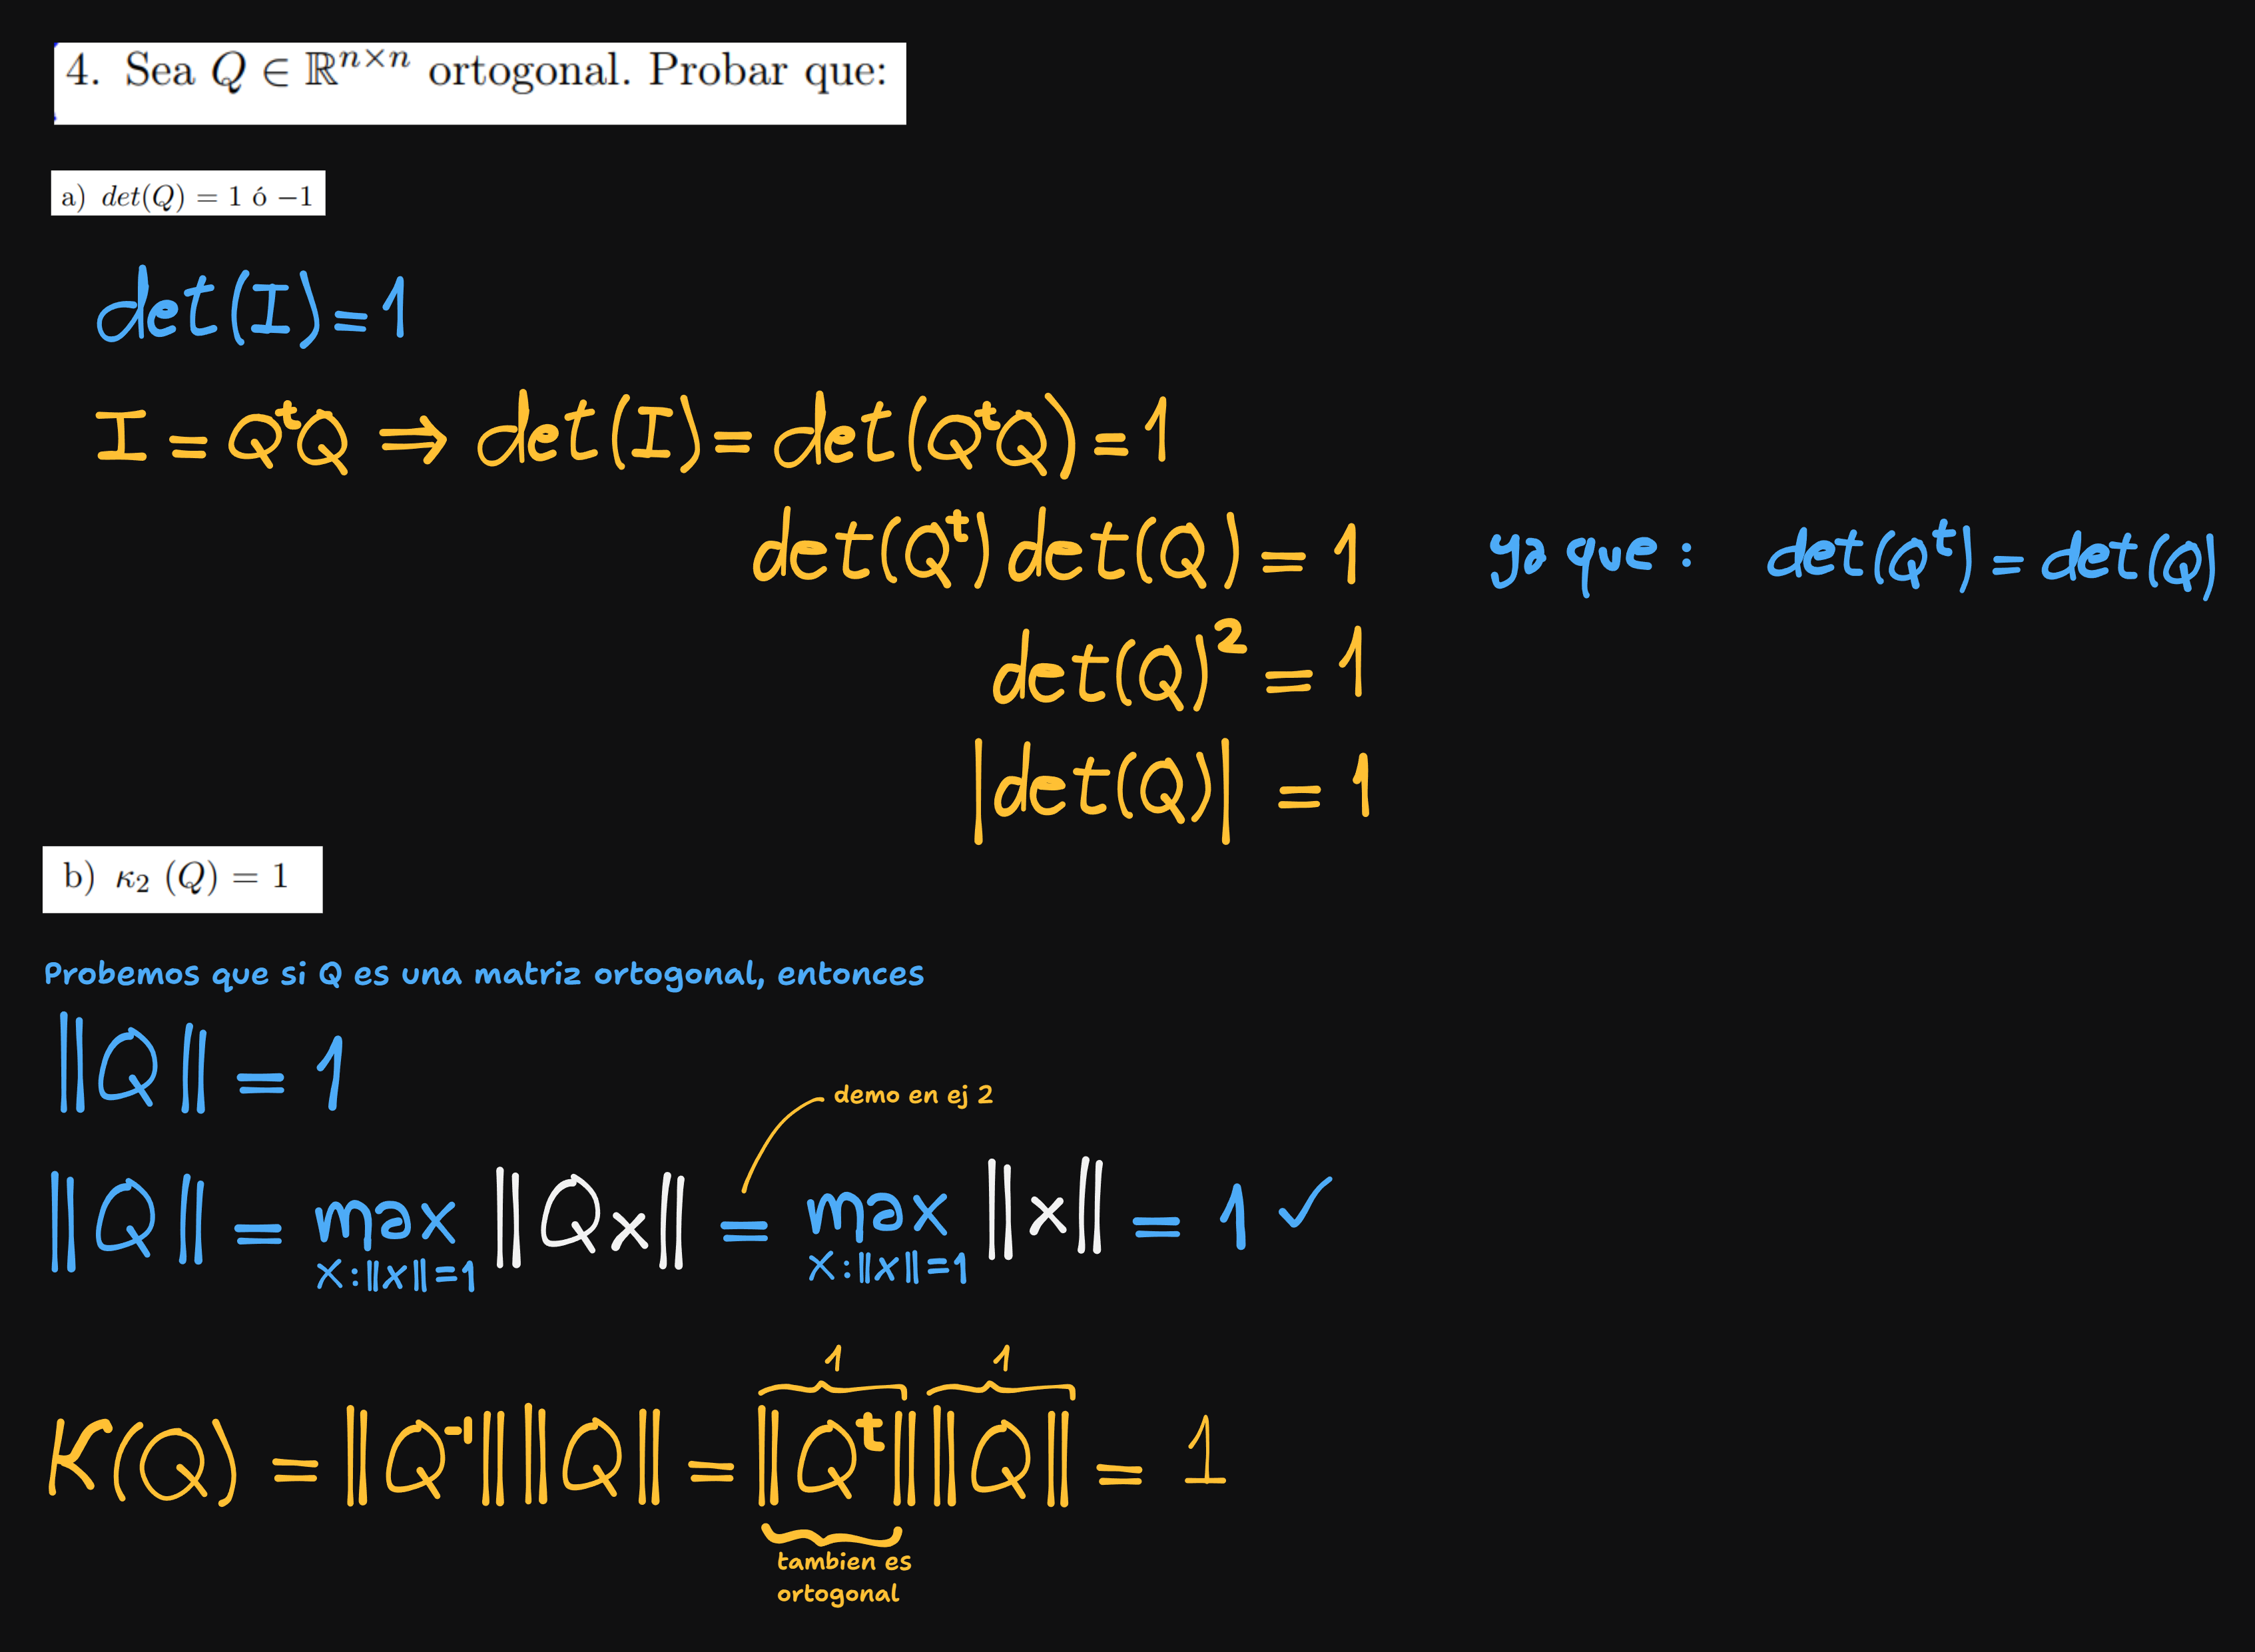 4. Sea Q ∈ ℝⁿˣⁿ ortogonal. Probar que:
a) det(Q) = 1 ó −1
det(I)=1
I = QᵗQ ⇒ det(I) = det(QᵗQ) = 1
det(Qᵗ) det(Q) = 1 ya que : det(Qᵗ) = det(Q)
det(Q)² = 1
|det(Q)| = 1
b) κ₂ (Q) = 1
Probemos que si Q es una matriz ortogonal, entonces
||Q|| = 1
demo en ej 2
||Q|| = max ||Qx|| = max ||x|| = 1 ✓
x:||x||=1 x:||x||=1
1 1
K(Q) = ||Q⁻¹|| ||Q|| = ||Qᵗ|| ||Q|| = 1
tambien es
ortogonal